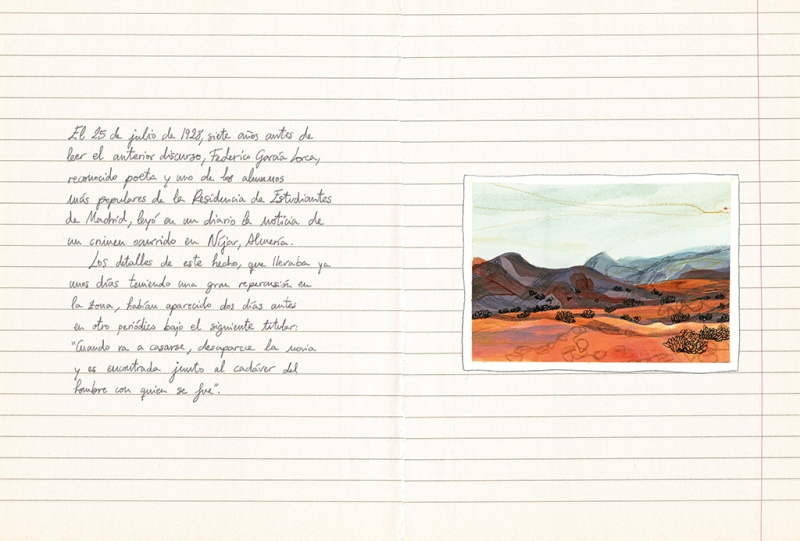 El 25 de julio de 1928, siete años antes de
leer el anterior discurso, Federico García Lorca,
reconocido poeta y uno de los alumnos
más populares de la Residencia de Estudiantes
de Madrid, leyó en un diario la noticia de
un crimen ocurrido en Níjar, Almería.
Los detalles de este hecho, que llevaba ya
unos días teniendo una gran repercusión en
la zona, habían aparecido dos días antes
en otro periódico bajo el siguiente titular:
"Cuando va a casarse, desaparece la novia
y es encontrada junto al cadáver del
hombre con quien se fue".